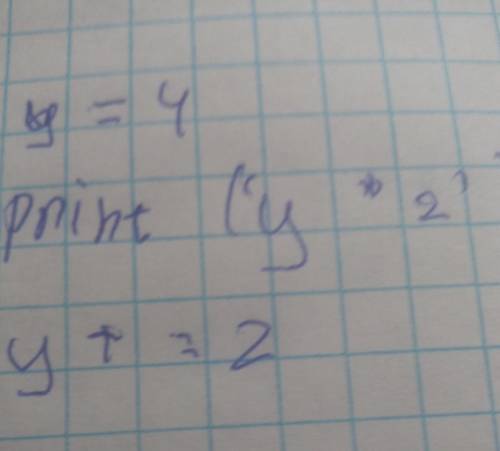 y = 4
print ('y * 2'
y + = 2